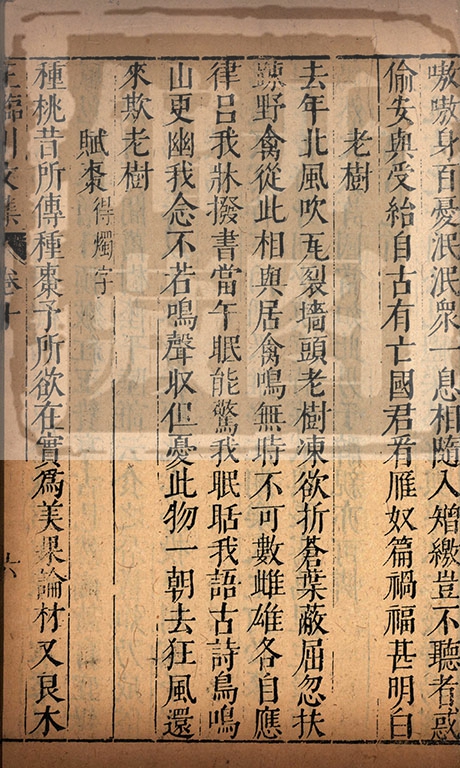 嗷嗷身百憂泯泯衆一息相隨入矰繳豈不聽者惑
偷安與受紿自古有亡國君看雁奴篇禍福甚明白
老樹
去年北風吹瓦裂墻頭老樹凍欲折蒼葉蔽屈忽扶
踈野禽從此相與居禽鳴無時不可數雌雄各自應
律呂我牀撥書當午眠能驚我眠聒我語古詩鳥鳴
山更幽我念不若鳴聲収但憂此物一朝去狂風還
來欺老樹
賦棗得燭字
種桃昔所傳種棗予所欲在實爲美果論材又良木
王臨川文集 卷十 六